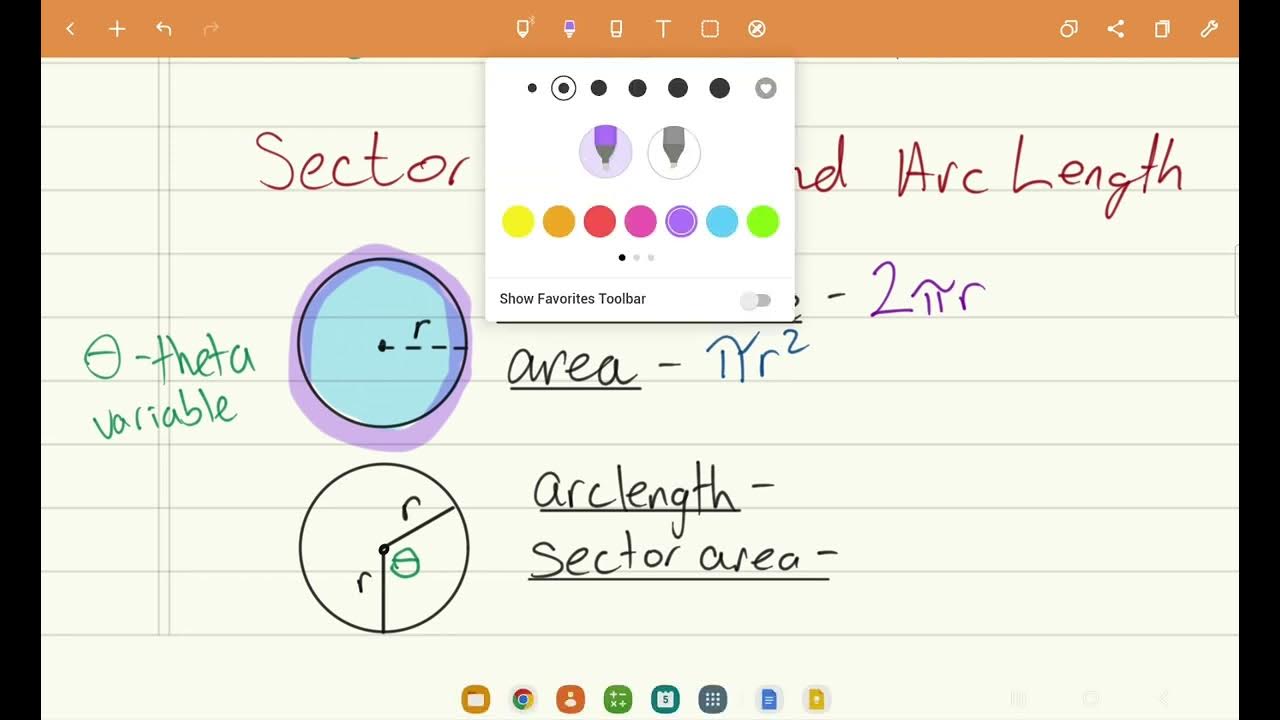 Sector nd Arc Length
Show Favorites Toolbar
- 2πr
r
area - πr²
θ - theta
variable
arclength -
r
sector area -
θ
r
5